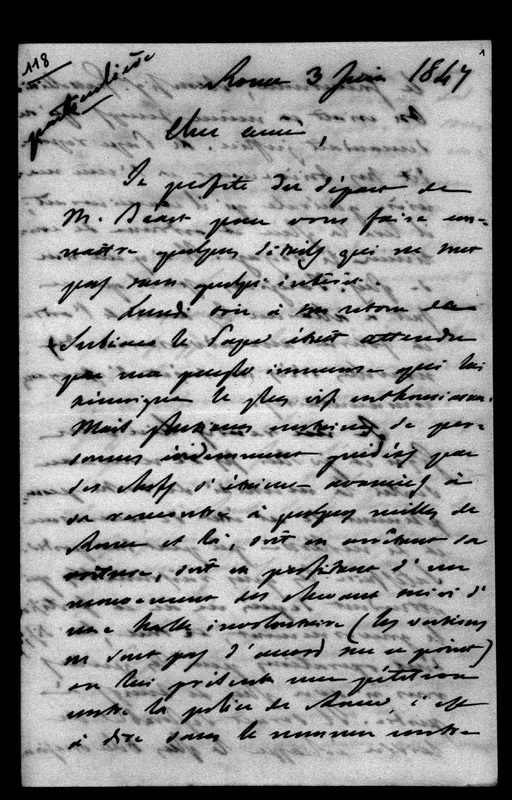 118
particulière
1
Rome 3 Juin 1847
Cher ami,
Je profite du départ de
M. pour vous faire con-
naître quelques détails qui ne sont
pas sans quelque intérêt.
Lundi soir à son retour de
Subiaco le Pape était attendu
par un peuple immense qui lui
témoigna le plus vif enthousiasme.
Mais plusieurs centaines de per-
sonnes évidemment guidées par
des chefs s'étaient avancées à
sa rencontre à quelques milles de
Rome et là, soit en arrêtant sa
voiture, soit en profitant d'un
mouvement des chevaux suivi d'
une halte involontaire (les versions
ne sont pas d'accord sur ce point)
on lui présenta une pétition
contre la police de Rome, c'est
à dire sans le nommer contre